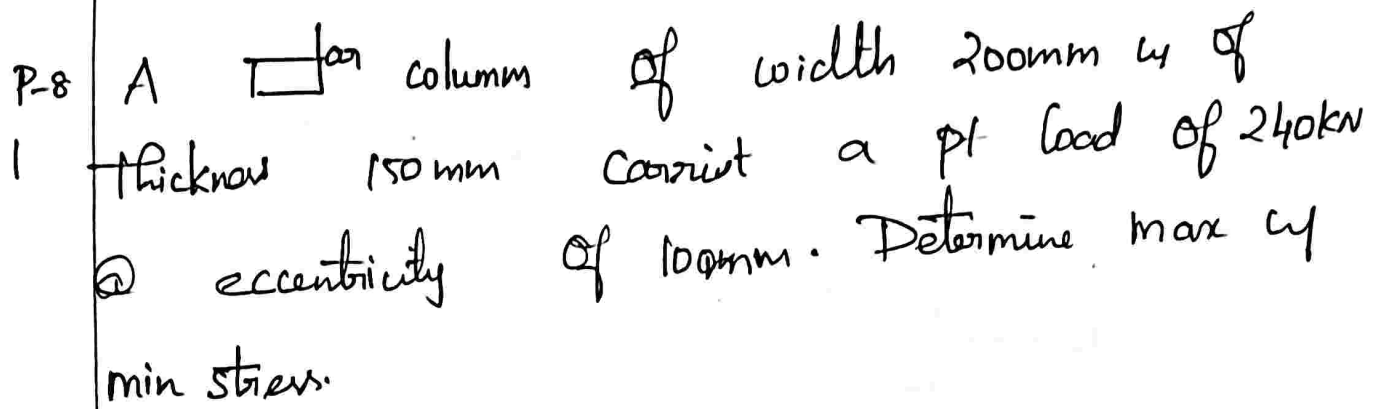 P-8 A ▭lar column of width 200mm & of
1 thickness 150mm carries a pt load of 240kN
@ eccentricity of 100mm. Determine max &
min stress.